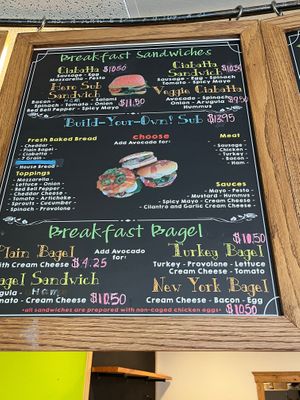 Breakfast Sandwiches
Ciabatta $10.50
Sausage - Egg
Mozzarella - Pesto
Ciabatta Sandwich $10.50
Sausage - Egg - Spinach
Tomato - Spicy Mayo
Hero Sub Sandwich
Bacon - Ham
Spinach - Tomato - Onion
Red Bell Pepper - Spicy Mayo
$11.50
Veggie Ciabatta
Avocado - Spinach
Onion - Arugula
Hummus
$9.50
Build-Your-Own! Sub $13.95
Fresh Baked Bread
- Cheddar
- Plain Bagel
- Ciabatta
- 7 Grain
- House Bread
Toppings
- Mozzarella
- Lettuce - Onion
- Red Bell Pepper
- Cheddar - Tomato
- Tomato - Artichoke
- Sprouts - Cucumber
- Spinach - Provolone
choose
Add Avocado for:
Meat
- Sausage
- Chicken
- Turkey
- Bacon
- Ham
Sauces
- Mayo - Pesto
- Mustard - Hummus
- Spicy Mayo - Cream Cheese
- Cilantro and Garlic Cream Cheese
Breakfast Bagel
Plain Bagel
with Cream Cheese $4.25
Add Avocado for:
Turkey Bagel $10.50
Turkey - Provolone - Lettuce
Cream Cheese - Tomato
Bagel Sandwich
Arugula - Ham
Tomato - Cream Cheese $10.50
New York Bagel
Cream Cheese - Bacon - Egg
$10.50
*all sandwiches are prepared with non-caged chicken eggs*